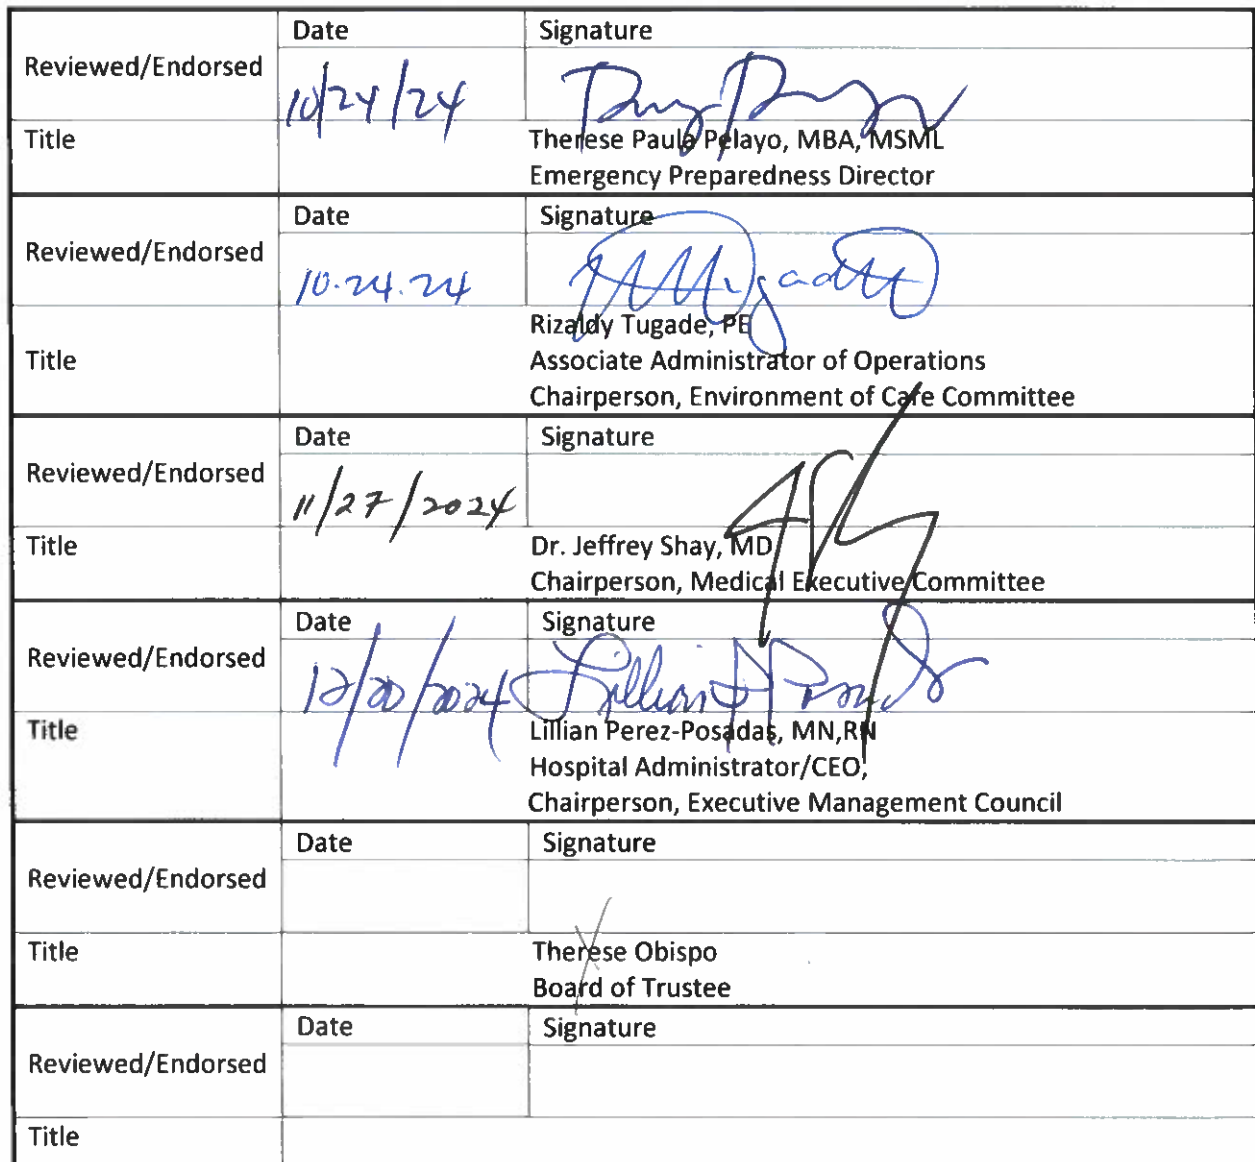 Reviewed/Endorsed Date Signature
10/24/24
Title Therese Paula Pelayo, MBA, MSML
Emergency Preparedness Director
Reviewed/Endorsed Date Signature
10.24.24
Rizaldy Tugade, PE
Title Associate Administrator of Operations
Chairperson, Environment of Care Committee
Reviewed/Endorsed Date Signature
11/27/2024
Title Dr. Jeffrey Shay, MD
Chairperson, Medical Executive Committee
Reviewed/Endorsed Date Signature
12/20/2024
Title Lillian Perez-Posadas, MN,RN
Hospital Administrator/CEO,
Chairperson, Executive Management Council
Reviewed/Endorsed Date Signature
Title Therese Obispo
Board of Trustee
Reviewed/Endorsed Date Signature
Title